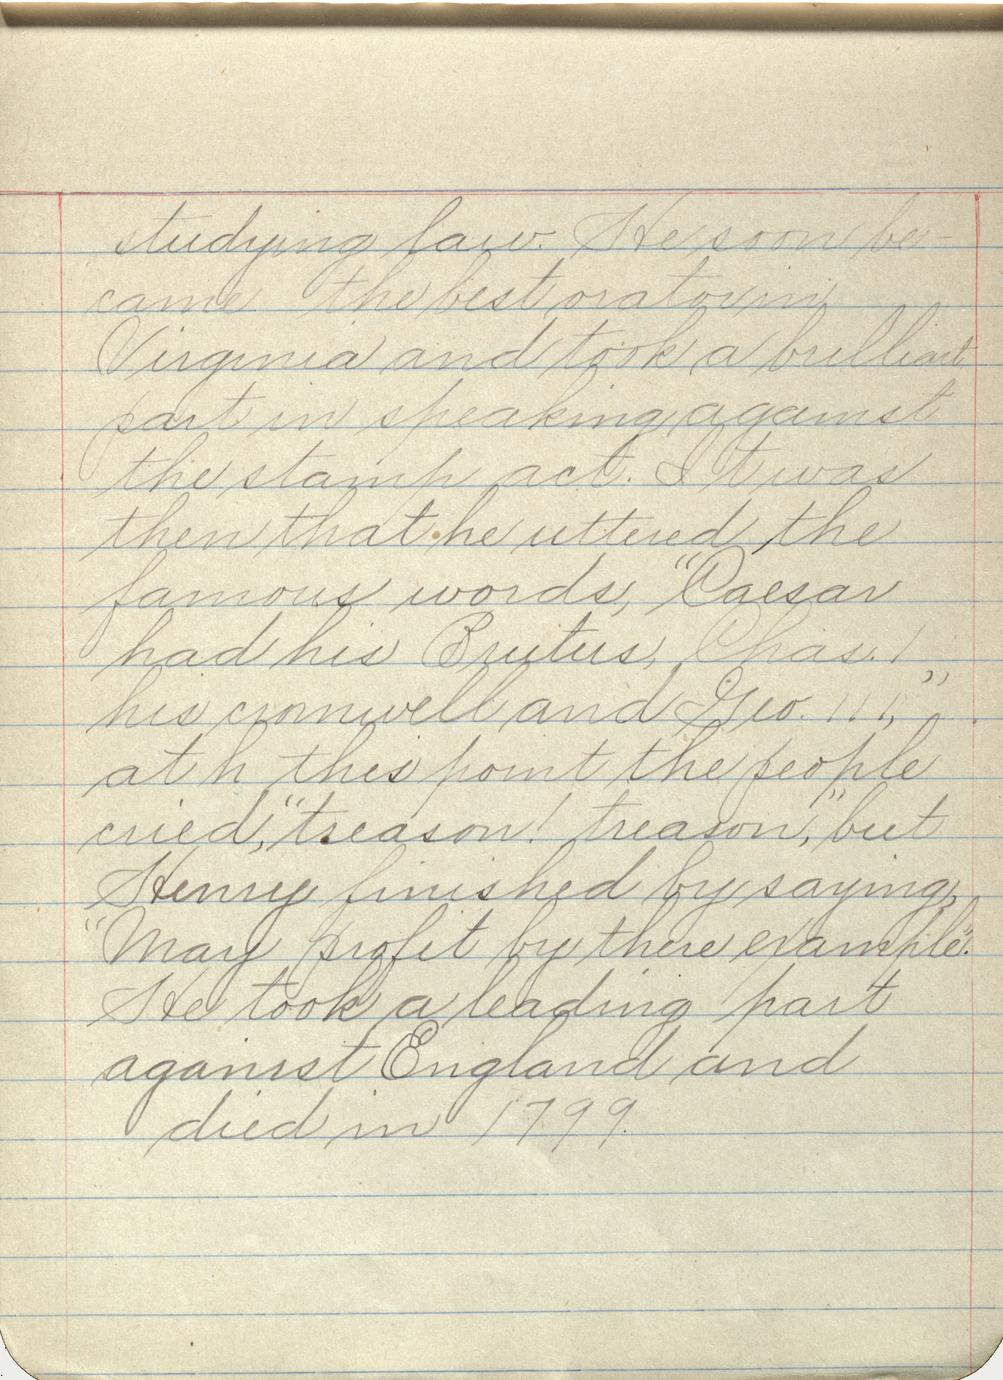 studying law. He soon be-
came the best orator in
Virginia and took a brilliant
part in speaking against
the stamp act. It was
then that he uttered the
famous words, "Caesar
had his Brutus, Chas. I
his cromwell and Geo. III,"
at h this point the people
cried, "treason! treason," but
Henry finished by saying,
"May profit by there example".
He took a leading part
against England and
died in 1799.